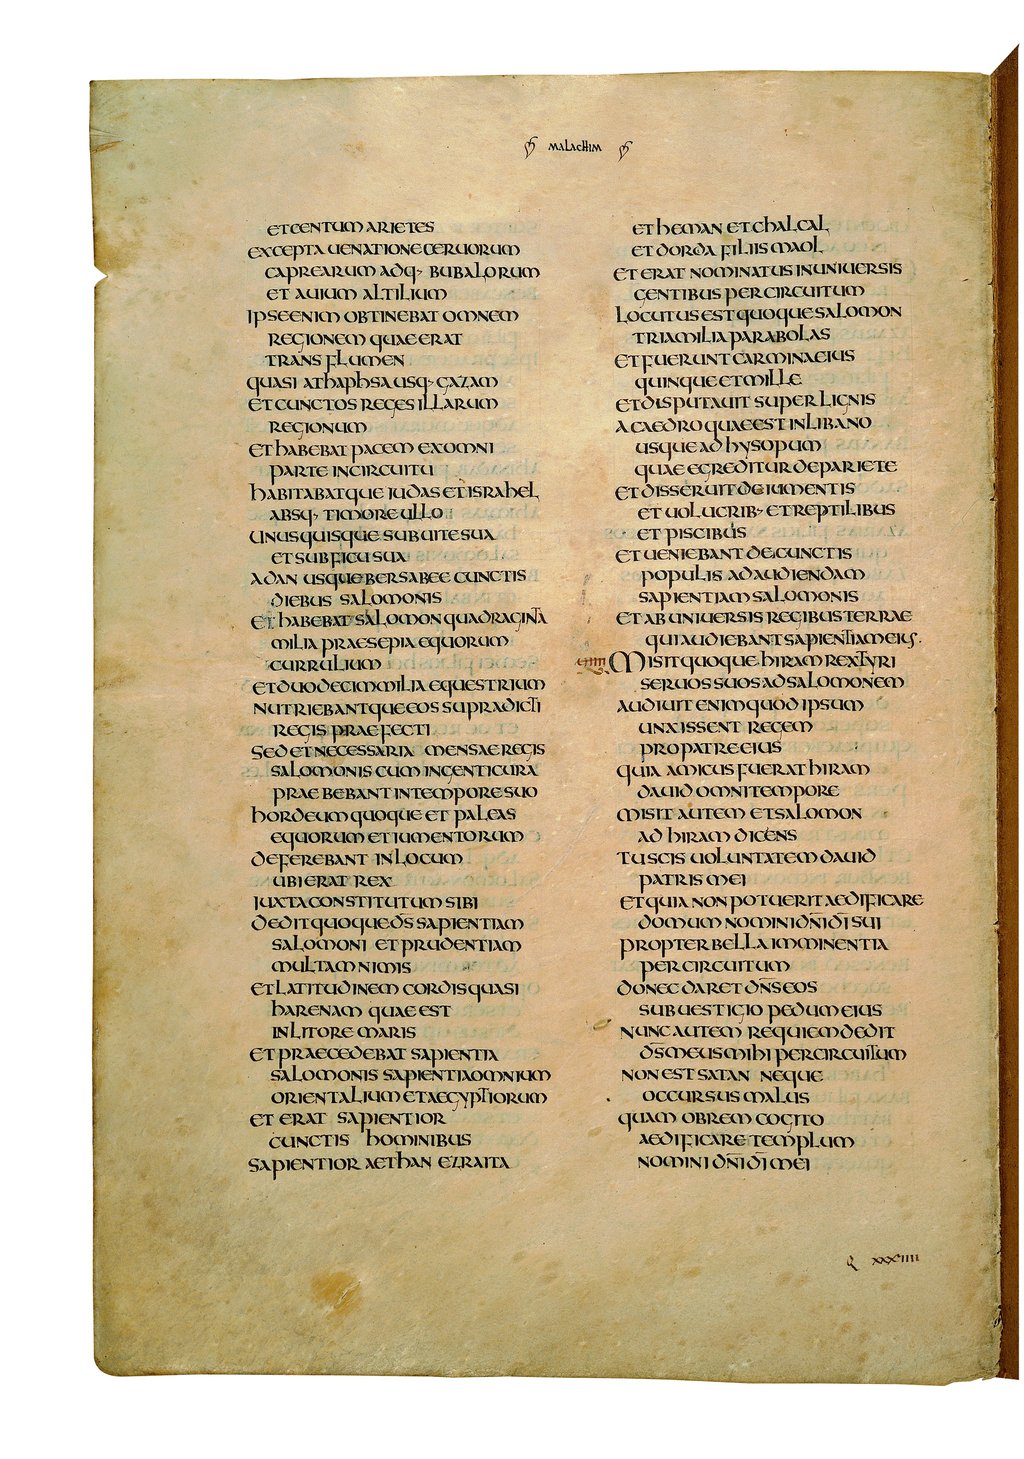 MALACHIM
ET CENTUM ARIETES
EXCEPTA UENATIONE CERUORUM
CAPREARUM ADQ· BUBALORUM
ET AUIUM ALTILIUM
IPSE ENIM OBTINEBAT OMNEM
REGIONEM QUAE ERAT
TRANS FLUMEN
QUASI A THAPHSA USQ· GAZAM
ET CUNCTOS REGES ILLARUM
REGIONUM
ET HABEBAT PACEM EX OMNI
PARTE IN CIRCUITU
HABITABATQUE IUDAS ET ISRAHEL
ABSQ· TIMORE ULLO
UNUSQUISQUE SUB UITE SUA
ET SUB FICU SUA
A DAN USQUE BERSABEE CUNCTIS
DIEBUS SALOMONIS
ET HABEBAT SALOMON QUADRAGINTA
MILIA PRAESEPIA EQUORUM
CURRULIUM
ET DUODECIM MILIA EQUESTRIUM
NUTRIEBANTQUE EOS SUPRADICTI
REGIS PRAEFECTI
SED ET NECESSARIA MENSAE REGIS
SALOMONIS CUM INGENTI CURA
PRAEBEBANT IN TEMPORE SUO
HORDEUM QUOQUE ET PALEAS
EQUORUM ET IUMENTORUM
DEFEREBANT IN LOCUM
UBI ERAT REX
IUXTA CONSTITUTUM SIBI
DEDIT QUOQUE D̄S SAPIENTIAM
SALOMONI ET PRUDENTIAM
MULTAM NIMIS
ET LATITUDINEM CORDIS QUASI
HARENAM QUAE EST
IN LITORE MARIS
ET PRAECEDEBAT SAPIENTIA
SALOMONIS SAPIENTIA OMNIUM
ORIENTALIUM ET AEGYPTIORUM
ET ERAT SAPIENTIOR
CUNCTIS HOMINIBUS
SAPIENTIOR AETHAN EZRAITA
ET HEMAN ET CHALCAL
ET DORDA FILIIS MAOL
ET ERAT NOMINATUS IN UNIUERSIS
GENTIBUS PER CIRCUITUM
LOCUTUS EST QUOQUE SALOMON
TRIA MILIA PARABOLAS
ET FUERUNT CARMINA EIUS
QUINQUE ET MILLE
ET DISPUTAUIT SUPER LIGNIS
A CAEDRO QUAE EST IN LIBANO
USQUE AD HYSOPUM
QUAE EGREDITUR DE PARIETE
ET DISSERUIT DE IUMENTIS
ET UOLUCRIB· ET REPTILIBUS
ET PISCIBUS
ET UENIEBANT DE CUNCTIS
POPULIS AD AUDIENDAM
SAPIENTIAM SALOMONIS
ET AB UNIUERSIS REGIBUS TERRAE
QUI AUDIEBANT SAPIENTIAM EIUS.
MISIT QUOQUE HIRAM REX TYRI
SERUOS SUOS AD SALOMONEM
AUDIUIT ENIM QUOD IPSUM
UNXISSENT REGEM
PRO PATRE EIUS
QUIA AMICUS FUERAT HIRAM
DAUID OMNI TEMPORE
MISIT AUTEM ET SALOMON
AD HIRAM DICENS
TU SCIS UOLUNTATEM DAUID
PATRIS MEI
ET QUIA NON POTUERIT AEDIFICARE
DOMUM NOMINI DN̄I D̄I SUI
PROPTER BELLA IMMINENTIA
PER CIRCUITUM
DONEC DARET DN̄S EOS
SUB UESTIGIO PEDUM EIUS
NUNC AUTEM REQUIEM DEDIT
D̄S MEUS MIHI PER CIRCUITUM
NON EST SATAN NEQUE
OCCURSUS MALUS
QUAM OBREM COGITO
AEDIFICARE TEMPLUM
NOMINI DN̄I D̄I MEI
Q XXXIIII